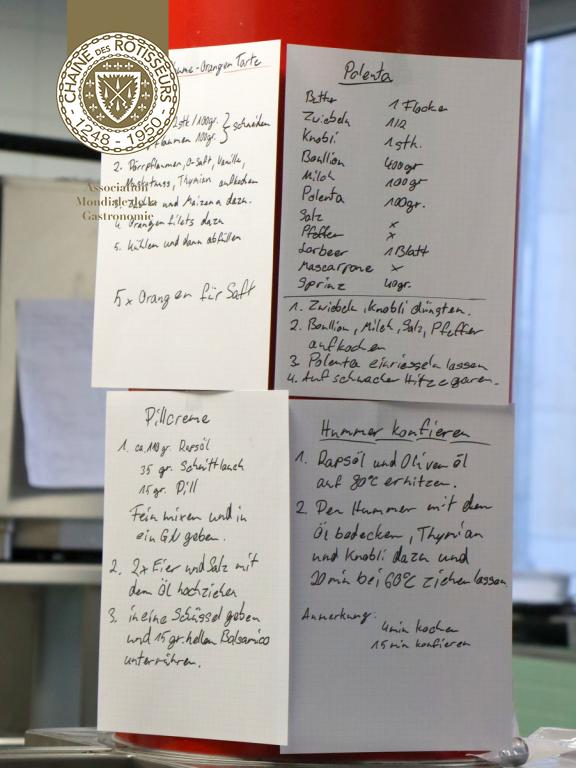 CHAINE DES ROTISSEURS
1248 - 1950
Association
Mondiale de la
Gastronomie
ume-Orangen Tarte
2stk/100gr. } schneiden
flaumen 100gr.
2. Dörrpflaumen, O-Saft, Vanille,
Muskatnuss, Thymian aufkochen
3. Zucker und Maizena dazu.
4. Orangenfilets dazu
5. Kühlen und dann abfüllen
5x Orangen für Saft
Polenta
Butter 1 Flocken
Zwiebeln 1/2
Knobli 1 stk.
Boullion 400gr
Milch 100gr
Polenta 100gr.
Salz x
Pfeffer x
Lorbeer 1 Blatt
Mascarpone x
Sprinz 40gr.
1. Zwiebeln, Knobli düngten.
2. Boullion, Milch, Salz, Pfeffer
aufkochen
3. Polenta einrieseln lassen
4. Auf schwacher Hitze garen.
Dillcreme
1. ca. 110gr. Rapsöl
35 gr. Schnittlauch
15 gr. Dill
Fein mixen und in
ein GN geben.
2. 2x Eier und Salz mit
dem Öl hochziehen
3. in eine Schüssel geben
und 15gr. hellen Balsamico
unterrühren.
Hummer konfieren
1. Rapsöl und Oliven öl
auf 80°C erhitzen.
2. Den Hummer mit dem
Öl bedecken, Thymian
und Knobli dazu und
20min bei 60°C ziehen lassen
Anmerkung:
4min kochen
15min konfieren